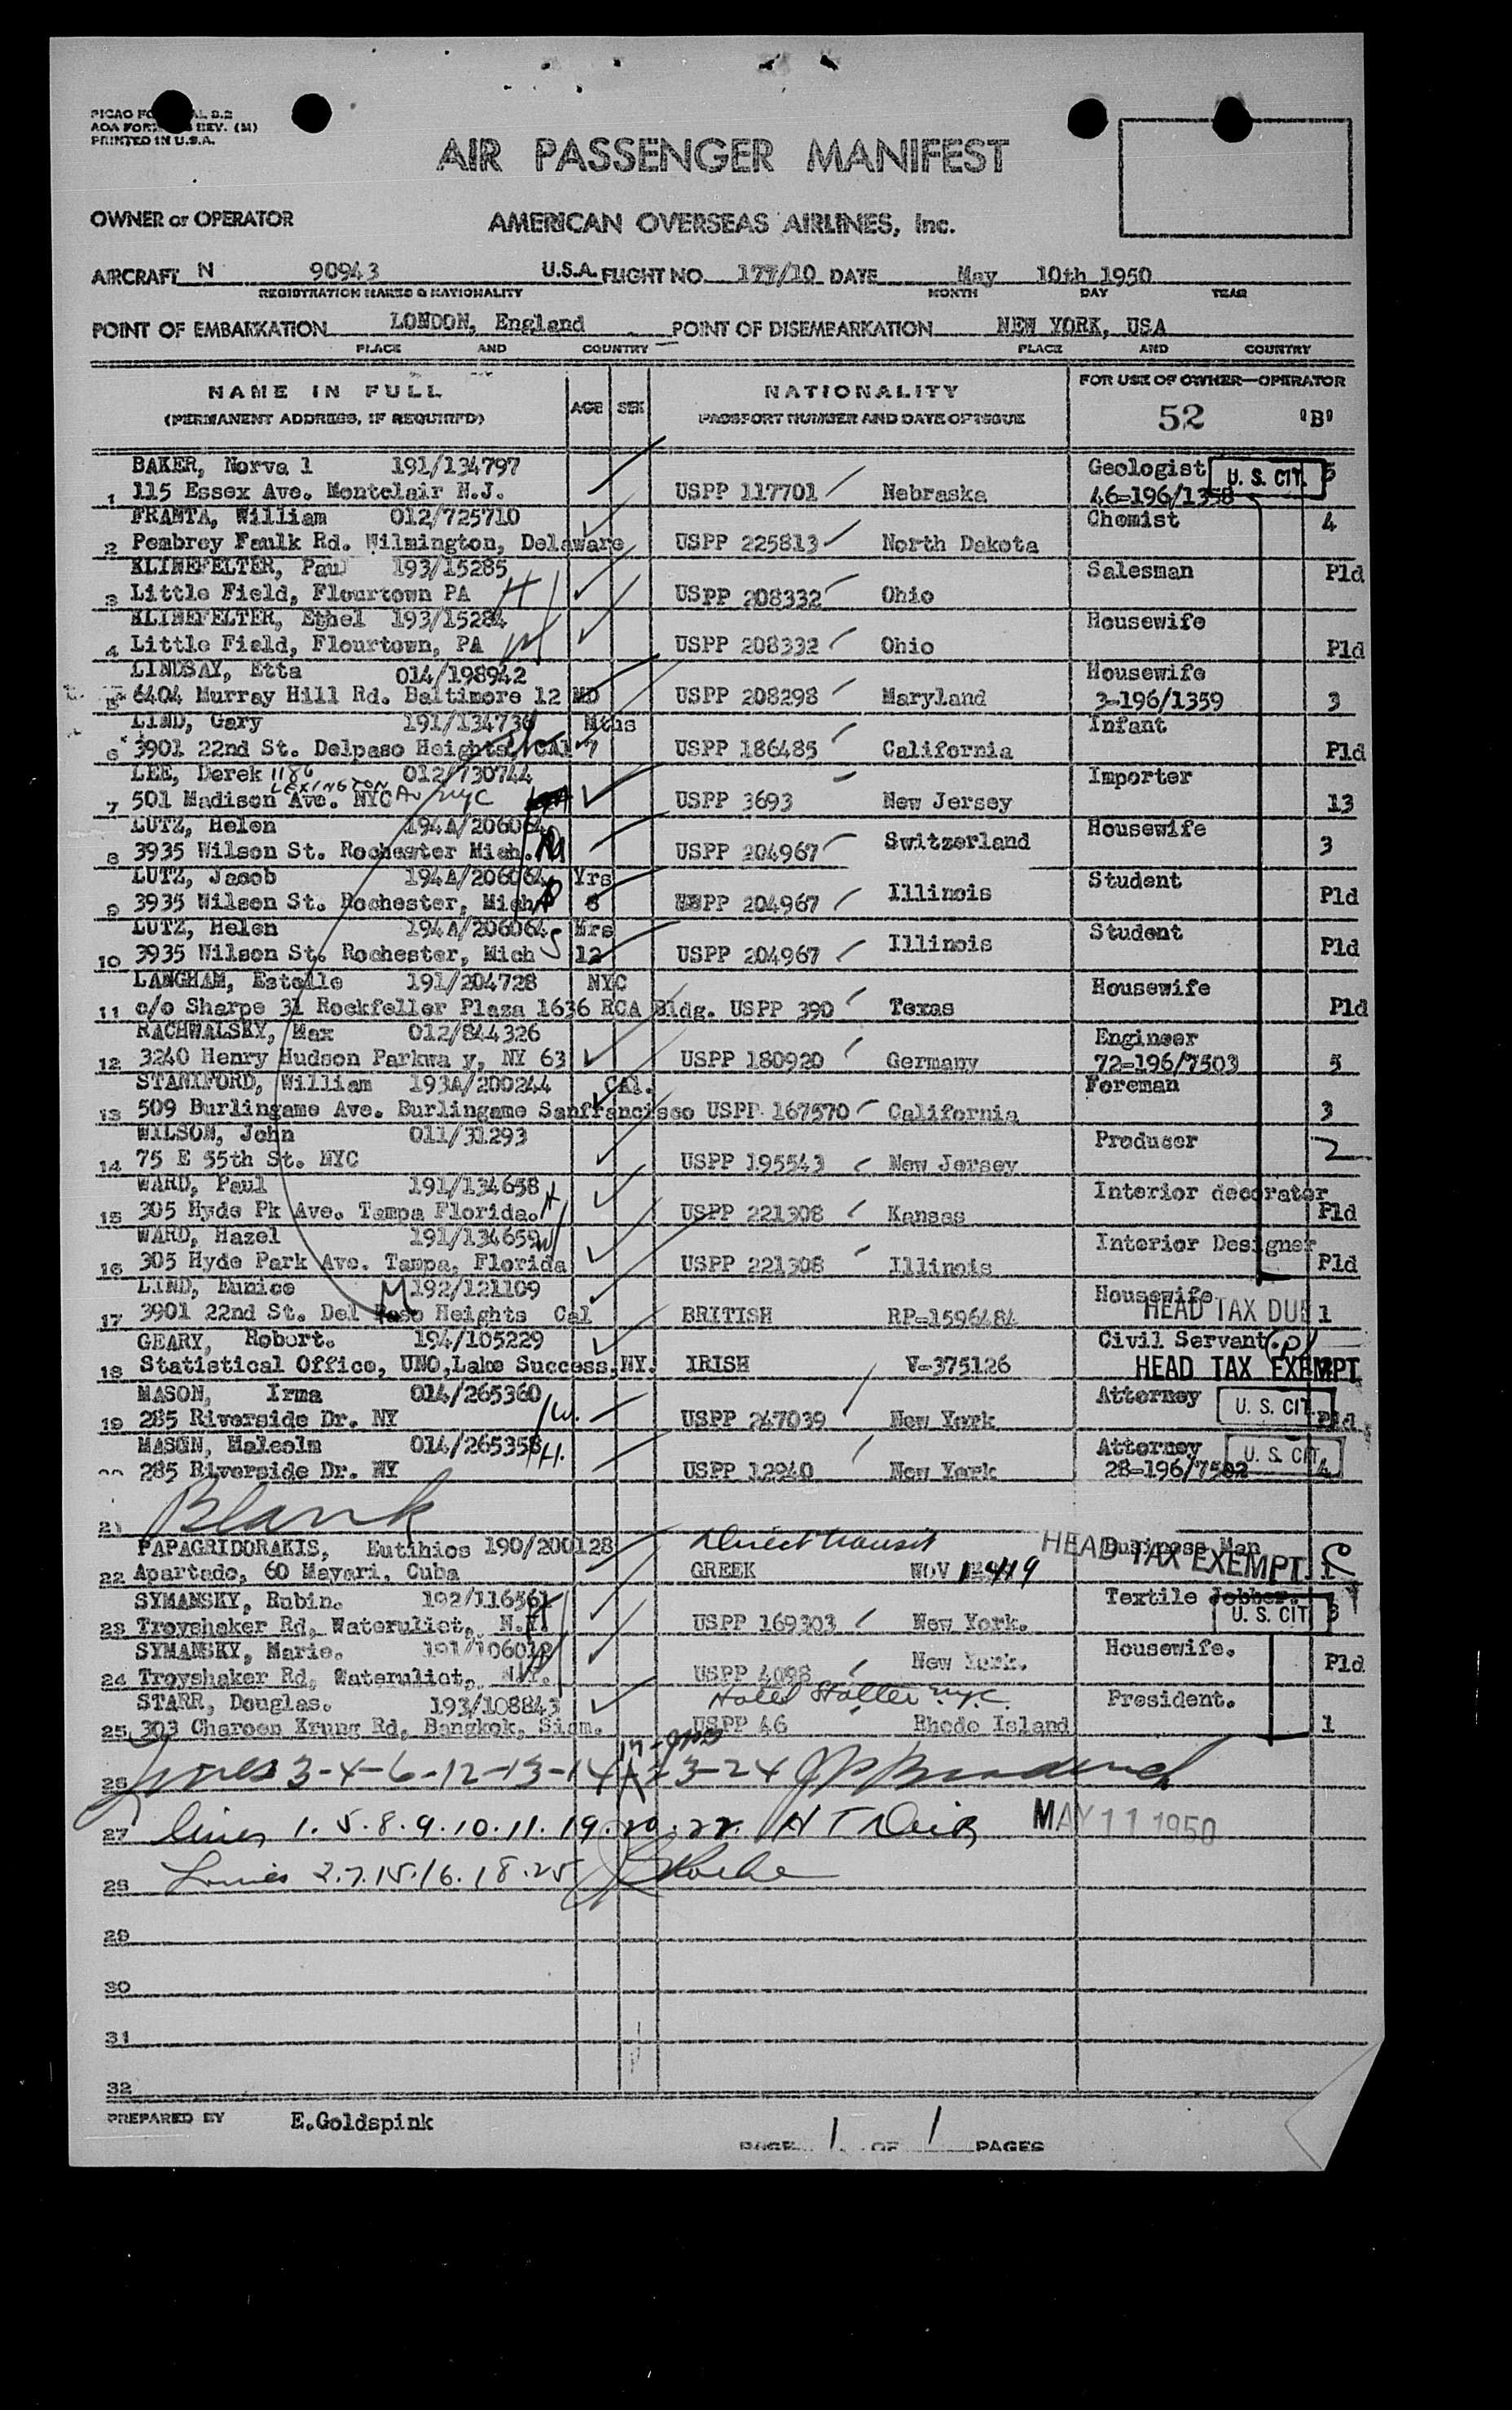 AIR PASSENGER MANIFEST
OWNER or OPERATOR AMERICAN OVERSEAS AIRLINES, Inc.
AIRCRAFT N 90943 U.S.A. FLIGHT NO. 177/10 DATE May 10th 1950
REGISTRATION MARKS & NATIONALITY MONTH DAY YEAR
POINT OF EMBARKATION LONDON, England POINT OF DISEMBARKATION NEW YORK, USA
PLACE AND COUNTRY PLACE AND COUNTRY
NAME IN FULL NATIONALITY FOR USE OF OWNER—OPERATOR
(PERMANENT ADDRESS, IF REQUIRED) AGE SEX PASSPORT NUMBER AND DATE OF ISSUE 52 "B"
BAKER, Norva l 191/134797 Geologist U. S. CIT. 5
1 115 Essex Ave. Montclair N.J. USPP 117701 Nebraska 46-196/1358
FRAMTA, William 012/725710 Chemist 4
2 Pembrey Faulk Rd. Wilmington, Delaware USPP 225813 North Dakota
KLINEFELTER, Paul 193/15285 Salesman Pld
3 Little Field, Flourtown PA H USPP 208332 Ohio
KLINEFELTER, Ethel 193/15284 Housewife
4 Little Field, Flourtown, PA W USPP 208332 Ohio Pld
LINDSAY, Etta 014/198942 Housewife
5 6404 Murray Hill Rd. Baltimore 12 MD USPP 208298 Maryland 3-196/1359 3
LIND, Gary 191/134736 Mths Infant
6 3901 22nd St. Delpaso Heights, CAL 7 USPP 186485 California Pld
LEE, Derek 1186 LEXINGTON Av NYC 012/730744 Importer
7 501 Madison Ave. NYC USPP 3693 New Jersey 13
LUTZ, Helen 194A/206064 Housewife
8 3935 Wilson St. Rochester Mich. M USPP 204967 Switzerland 3
LUTZ, Jacob 194A/206064 Yrs Student
9 3935 Wilson St. Rochester, Mich 8 USPP 204967 Illinois Pld
LUTZ, Helen 194A/206064 Mrs Student
10 3935 Wilson St. Rochester, Mich S 12 USPP 204967 Illinois Pld
LANGHAM, Estelle 191/204728 NYC Housewife
11 c/o Sharpe 31 Rockfeller Plaza 1636 RCA Bldg. USPP 390 Texas Pld
RACHWALSKY, Max 012/844326 Engineer
12 3240 Henry Hudson Parkwa y, NY 63 USPP 180920 Germany 72-196/7503 5
STANIFORD, William 193A/200244 CAL. Foreman
13 509 Burlingame Ave. Burlingame Sanfrancisco USPP 167570 California 3
WILSON, John 011/31293 Producer 2
14 75 E 55th St. NYC USPP 195543 New Jersey
WARD, Paul 191/134658 H Interior decorator
15 305 Hyde Pk Ave. Tampa Florida. USPP 221308 Kansas Pld
WARD, Hazel 191/134659 W Interior Designer
16 305 Hyde Park Ave. Tampa, Florida USPP 221308 Illinois Pld
LIND, Eunice M 192/121109 Housewife HEAD TAX DUE
17 3901 22nd St. Del Paso Heights Cal BRITISH RP-1596484 1
GEARY, Robert. 194/105229 Civil Servant
18 Statistical Office, UNO, Lake Success, NY. IRISH V-375126 HEAD TAX EXEMPT
MASON, Irma 014/265360 Attorney U. S. CIT.
19 285 Riverside Dr. NY W. USPP 247039 New York Pld
MASON, Malcolm 014/265358 H. Attorney U. S. CIT.
285 Riverside Dr. NY USPP 12940 New York 28-196/7502 4
21 Blank
PAPAGRIDORAKIS, Eutihios 190/200128 Direct transit Business Man HEAD TAX EXEMPT
22 Apartado, 60 Mayari, Cuba GREEK NOV 1
SYMANSKY, Rubin. 192/116561 H Textile Jobber.
23 Troyshaker Rd, Wateruliet, N.Y. USPP 169303 New York. U. S. CIT. 3
SYMANSKY, Marie. Housewife.
24 Troyshaker Rd, Wateruliet, N.Y. W USPP 4098 New York. Pld
STARR, Douglas. 193/108843 Hotel Statler N.Y.C. President.
25 303 Charoen Krung Rd, Bangkok, Siam. USPP 46 Rhode Island 1
26 Lines 3-4-6-12-13-14-17-23-24
27 Lines 1. 5. 8. 9. 10. 11. 19. 20. 22. MAY 11 1950
28 Lines 2. 7. 15. 16. 18. 25
29
30
31
32
PREPARED BY E.Goldspink
PAGE 1 OF 1 PAGES